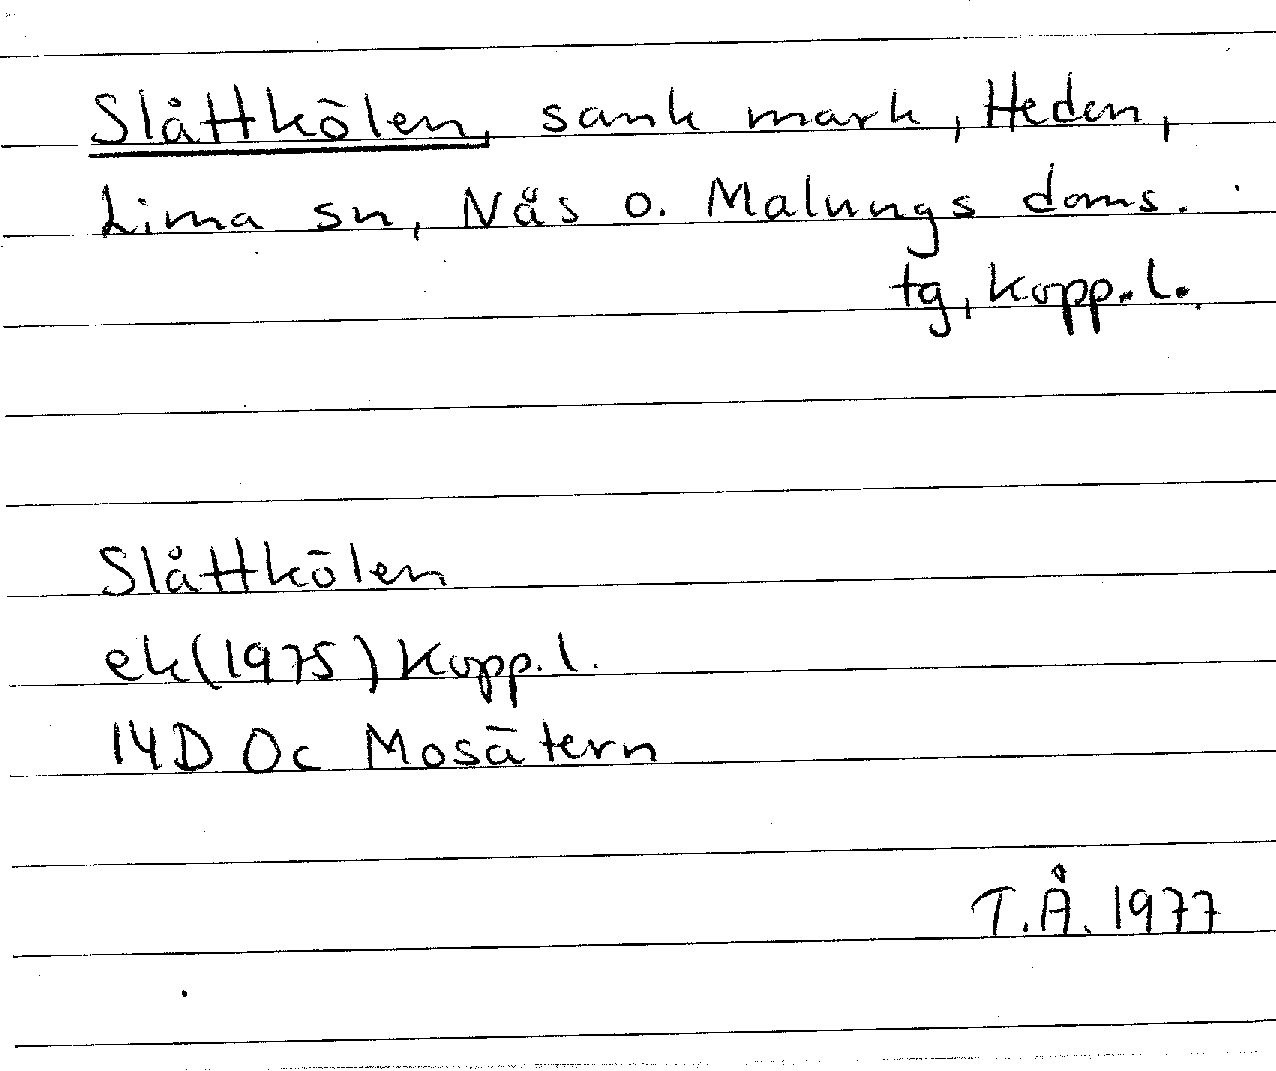 Slåttkölen, sank mark, Heden,
Lima sn, Nås o. Malungs doms.
tg, Kopp. l.
Slåttkölen
ek(1975) Kopp. l.
14D Oc Mosätern
T.Å. 1977